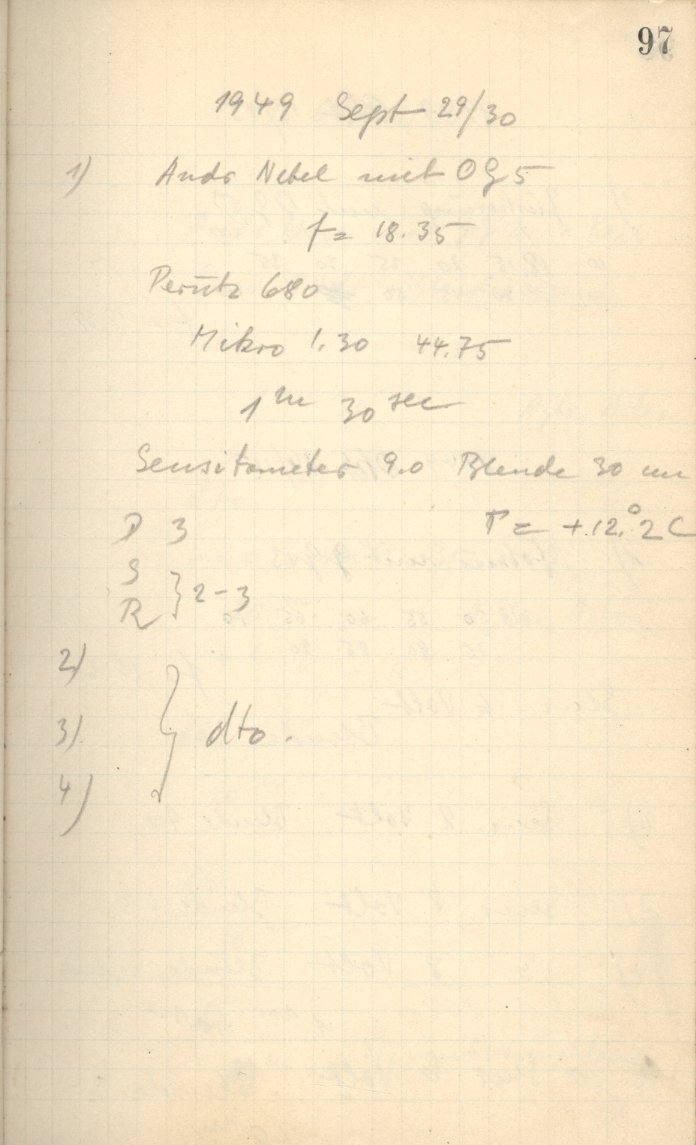 97
1949 Sept 29/30
1) Andr Nebel mit OG5
f = 18.35
Perutz 680
Mikro 1.30 44.75
1m 30sec
Sensitometer 9.0 Blende 30 mm
D 3 T = +12.°2 C
S
R } 2-3
2)
3) } dto.
4)